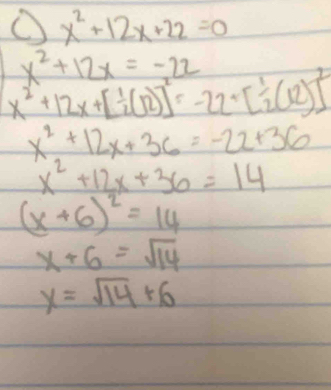 c) x² + 12x + 22 = 0
x² + 12x = -22
x² + 12x + [½(12)]² = -22 + [½(12)]²
x² + 12x + 36 = -22 + 36
x² + 12x + 36 = 14
(x + 6)² = 14
x + 6 = √14
x = √14 + 6